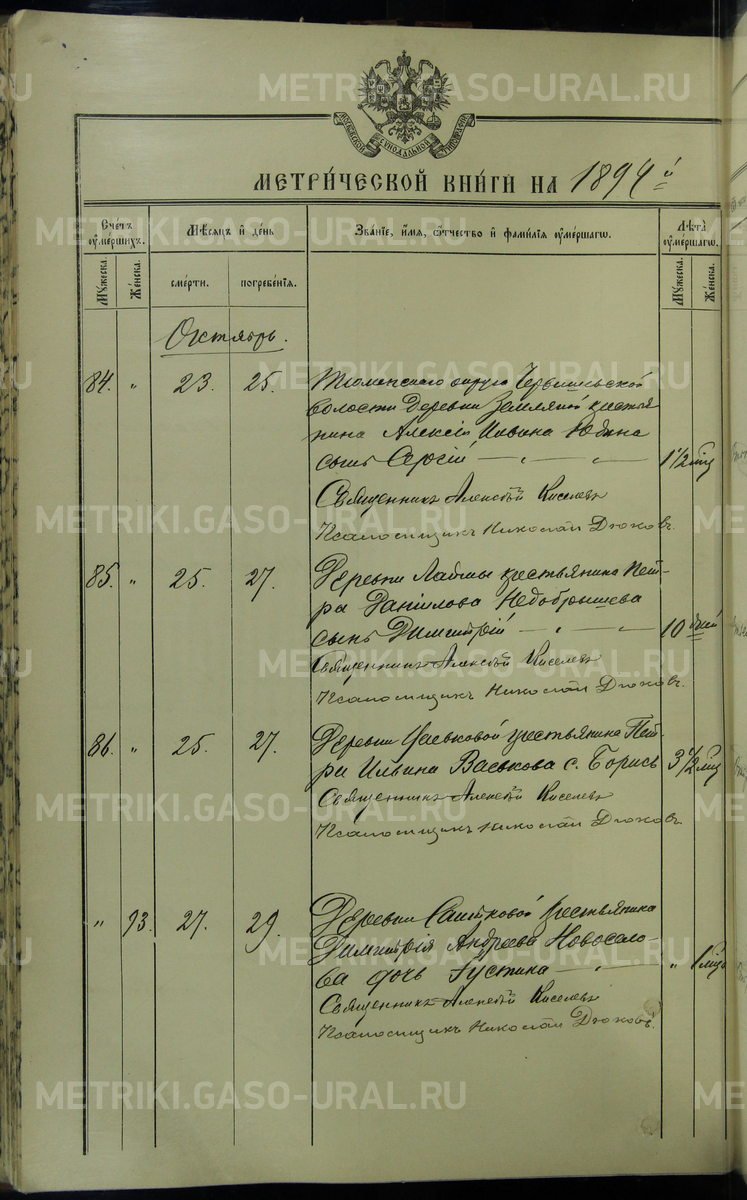 МОСКОВСКОЙ СУНОДАЛЬНОЙ ТИПОГРАФІИ
МЕТРИ́ЧЕСКОЙ КНИ́ГИ НА 1894й
Сче́тъ оуме́ршихъ.
Мѣ́сяцъ и҆ де́нь
Зва́нїе, и҆́мя, ѻ҆́тчество и҆ фами́лїя оуме́ршагѡ.
Лѣ́та оуме́ршагѡ.
Му́жеска.
Же́нска.
сме́рти.
погребе́нїя.
Му́жеска.
Же́нска.
Октябрь.
84. „ 23. 25. Тюменскаго округа Червишевской
волости деревни Земляной крестья
нина Алексія Иывина Юдина
сынъ Сергій — „ — „ — 1 1/2 мѣс
Священникъ Алексѣй Киселевъ
Псаломщикъ Николай Дюковъ.
85. „ 25. 27. Деревни крестьянина Пет-
ра Даніилова Недобрышева
сынъ Димитрій — „ — 10 дней
Священникъ Алексѣй Киселевъ
Псаломщикъ Николай Дюковъ.
86. „ 25. 27. Деревни крестьянина Пет-
ра Ильина Васькова с. Борисъ 3 1/2 мѣс
Священникъ Алексѣй Киселевъ
Псаломщикъ Николай Дюковъ.
„ 73. 27. 29. Деревни крестьянина
Димитрія Андреева Новосело-
ва дочь Густина — „ — „ 1 мѣс
Священникъ Алексѣй Киселевъ
Псаломщикъ Николай Дюковъ.
METRIKI.GASO-URAL.RU